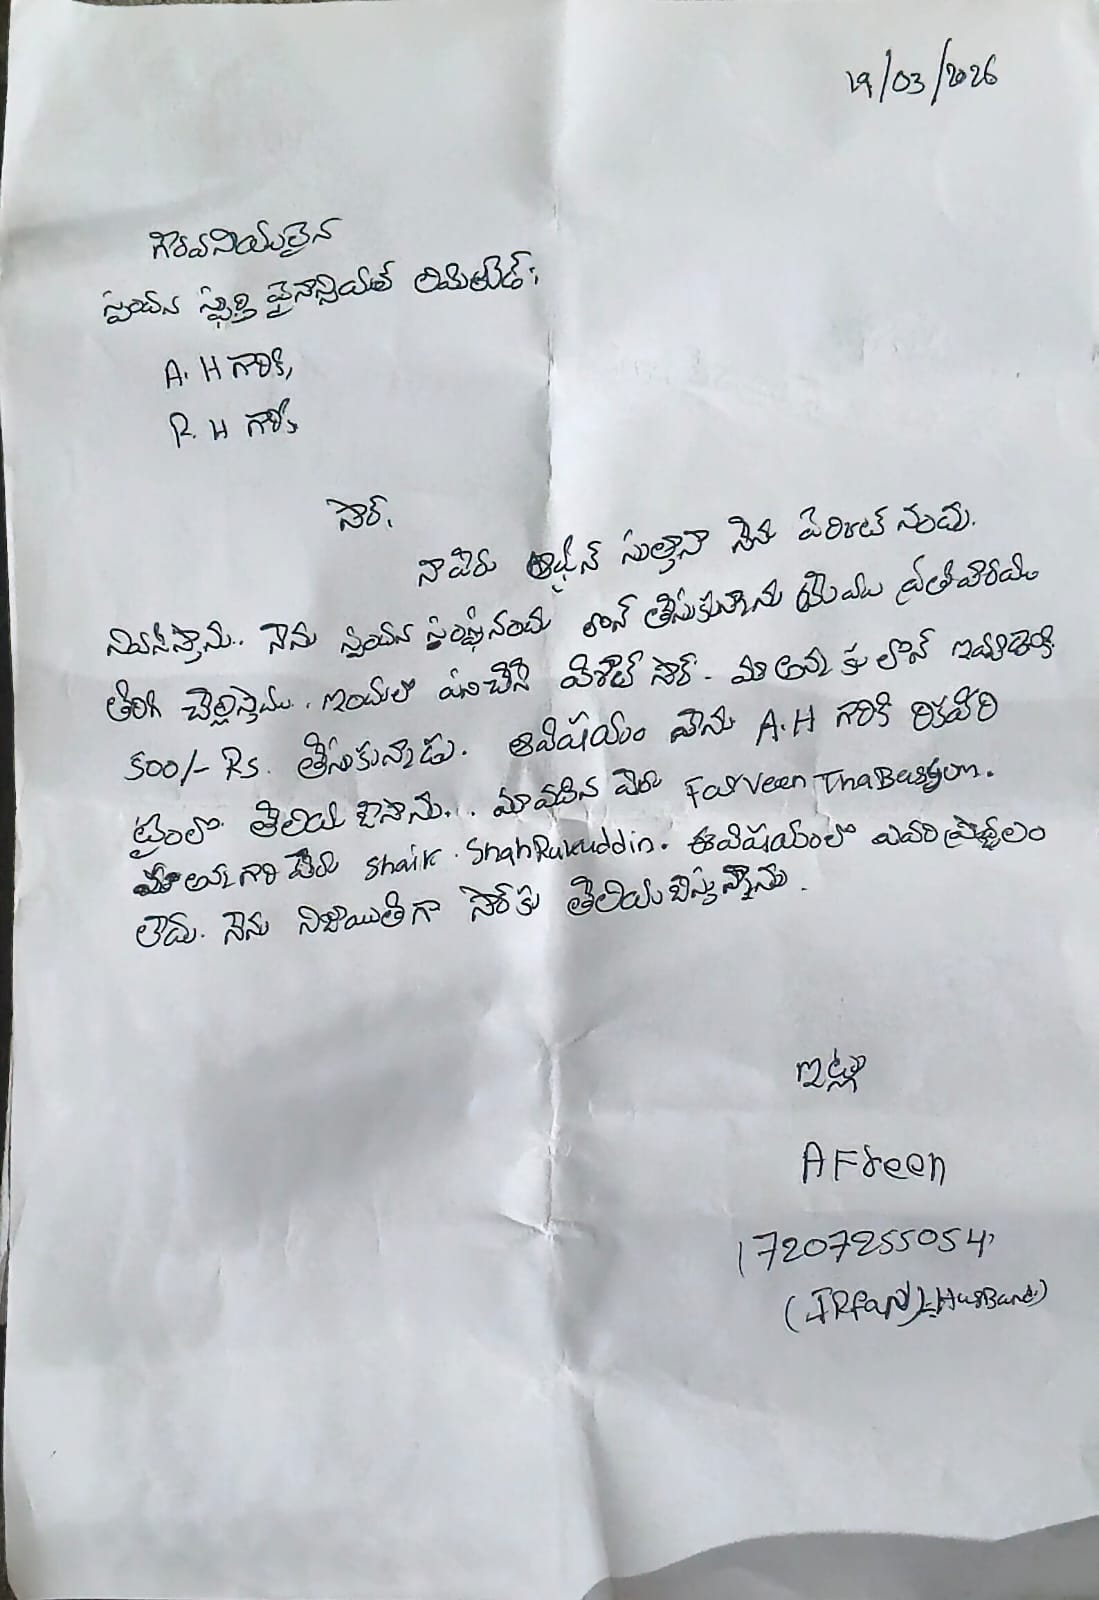 19/03/2026
గౌరవనియులైన
స్పందన స్ఫూర్తి ఫైనాన్సియల్ లిమిటెడ్;
A. H గారికి,
R. H గారికి
సార్,
నా పేరు ఆఫ్రీన్ సుల్తానా నేను పేరంట్ నందు.
నివసిస్తాను.. నేను స్పందన సంస్థనందు లోన్ తీసుకున్నాను యెడల ప్రతివారము
తిరిగి చెల్లిస్తాము. ఇందులో పనిచేసే విశాల్ సార్. మా అన్న కు లోన్ ఇచ్చుటకి
500/- Rs. తీసుకున్నాడు. ఈవిషయం నాను A.H గారికి రికవేరి
టైంలో తెలియ జేసాను... మా వదిన పేరు Farveen ThaBassum.
మా అన్న గారి పేరు Shaik. ShahRukuddin. ఈవిషయంలో ఎవరి ప్రోద్బలం
లేదు. నేను నిజాయితిగా సార్ కు తెలియ జేస్తున్నాను.
ఇట్లు
AFreen
7207255054,
(IRfan)-HusBand)